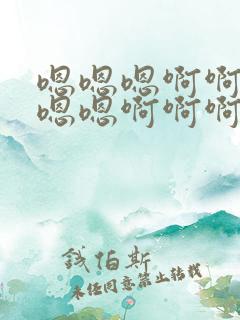 嗯嗯嗯啊啊
嗯嗯啊啊啊
钱伯斯
未经同意禁止转载